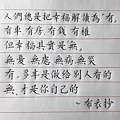 人們總是把幸福解讀為「有」,
有車有房有錢有權
但幸福其實是「無」,
無憂無慮無病無災
有,多半是做給別人看的
無,才是你自己的
~布衣抄